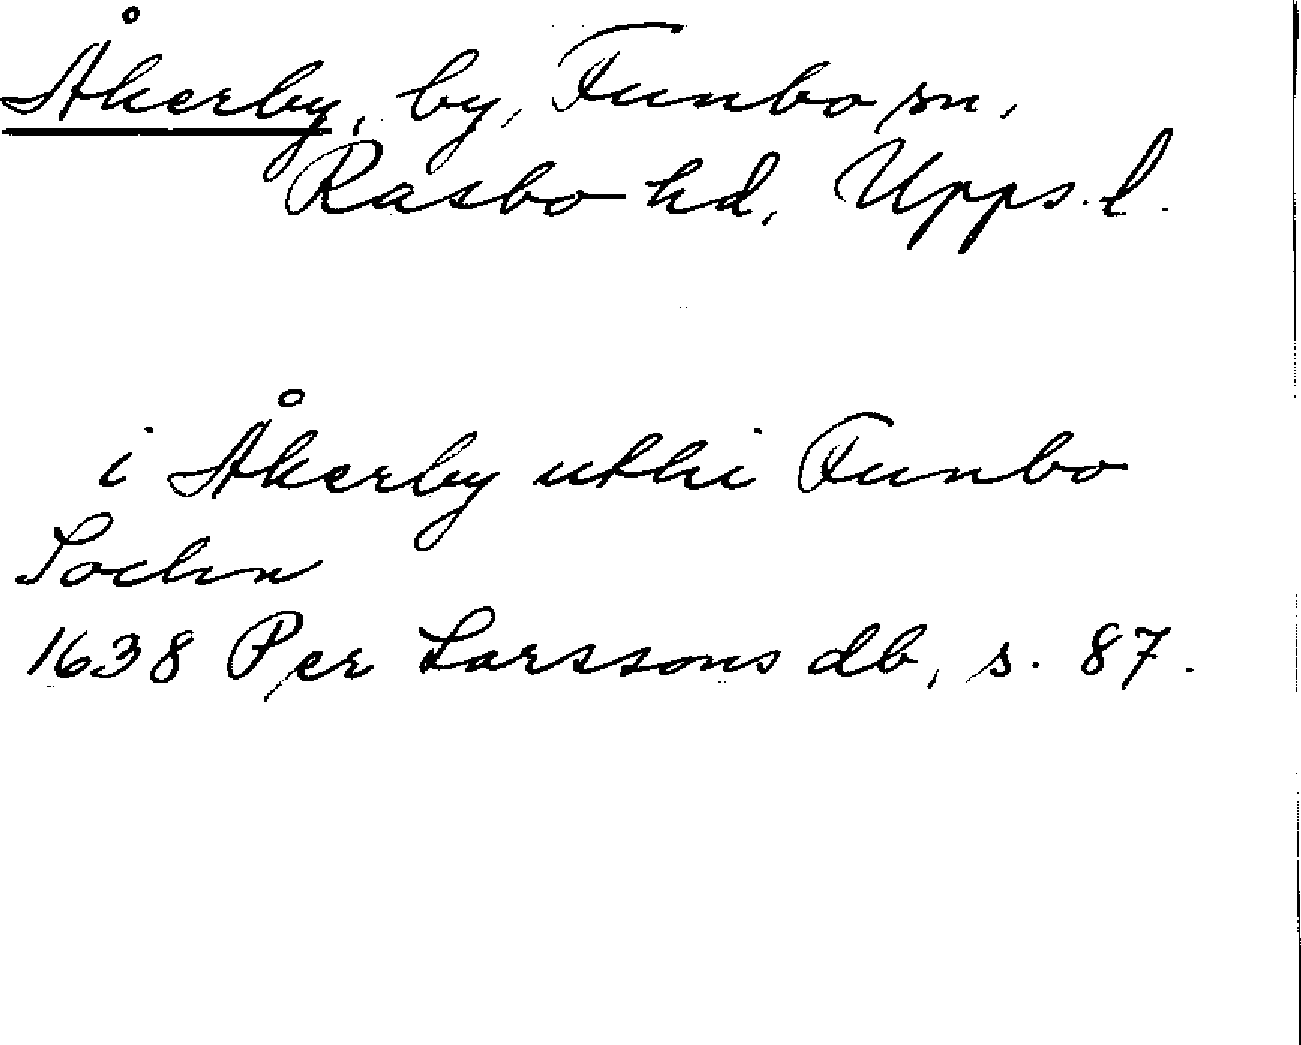 Åkerby, by, Funbo sn,
Rasbo hd, Upps. l.
i Åkerby uthi Funbo
Sochn
1638 Per Larssons db, s. 87.